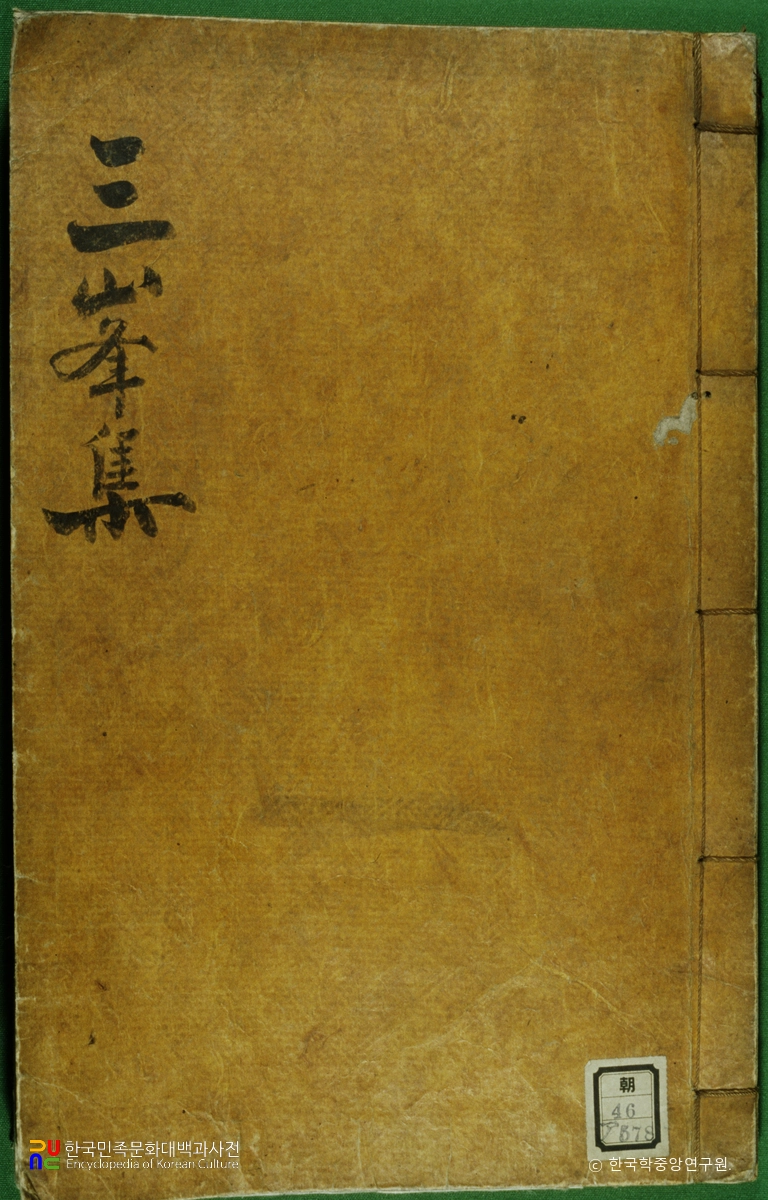 三峯集
朝
46
한국민족문화대백과사전
Encyclopedia of Korean Culture
© 한국학중앙연구원.